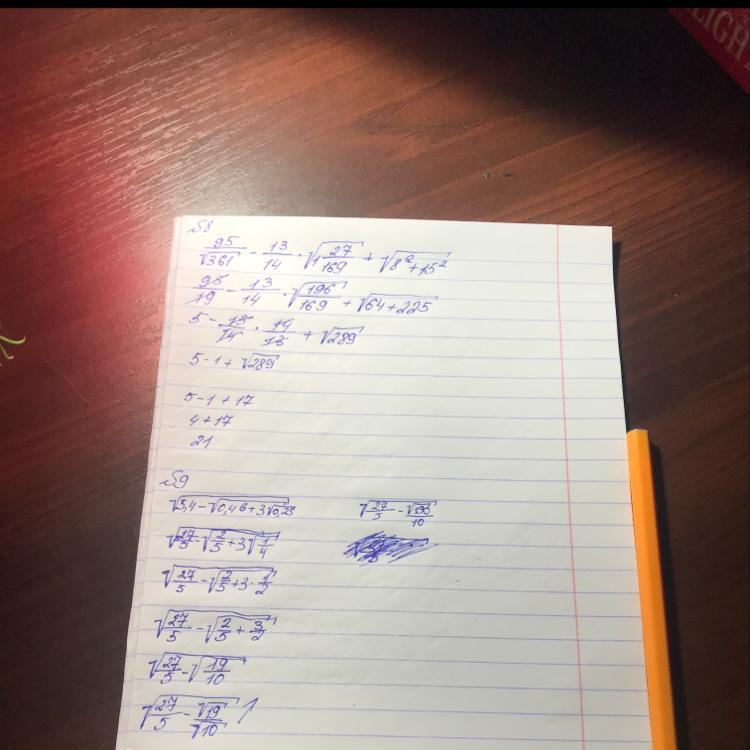 №8
95/√361 - 13/14 · √(1 27/169) + √(8² + 15²)
95/19 - 13/14 · √(196/169) + √(64+225)
5 - 13/14 · 14/13 + √289
5 - 1 + √289
5 - 1 + 17
4 + 17
21
№9
√(5,4 - √(0,4 + 3√0,25))
√(27/5 - √(2/5 + 3√(1/4)))
√(27/5 - √(2/5 + 3 · 1/2))
√(27/5 - √(2/5 + 3/2))
√(27/5 - √(19/10))
√(27/5 - √19/√10)
√(27/5 - √190/10)
LIGH